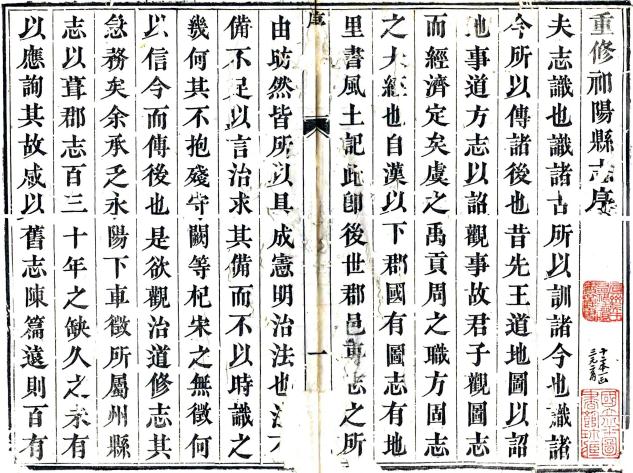 重修祁陽縣志序
夫志識也識諸古所以訓諸今也識諸
今所以傳諸後也昔先王道地圖以詔
地事道方志以詔觀事故君子觀圖志
而經濟定矣虞之禹貢周之職方固志
之大經也自漢以下郡國有圖志有地
里書風土記此即後世郡邑專志之所
序
一
由昉然皆所以具成憲明治法也
備不足以言治求其備而不以時識之
幾何其不抱殘守闕等杞宋之無徵何
以信今而傳後也是欲觀治道修志其
急務矣余承乏永陽下車徵所屬州縣
志以葺郡志百三十年之缺久之未有
以應詢其故咸以舊志陳篇遠則百有